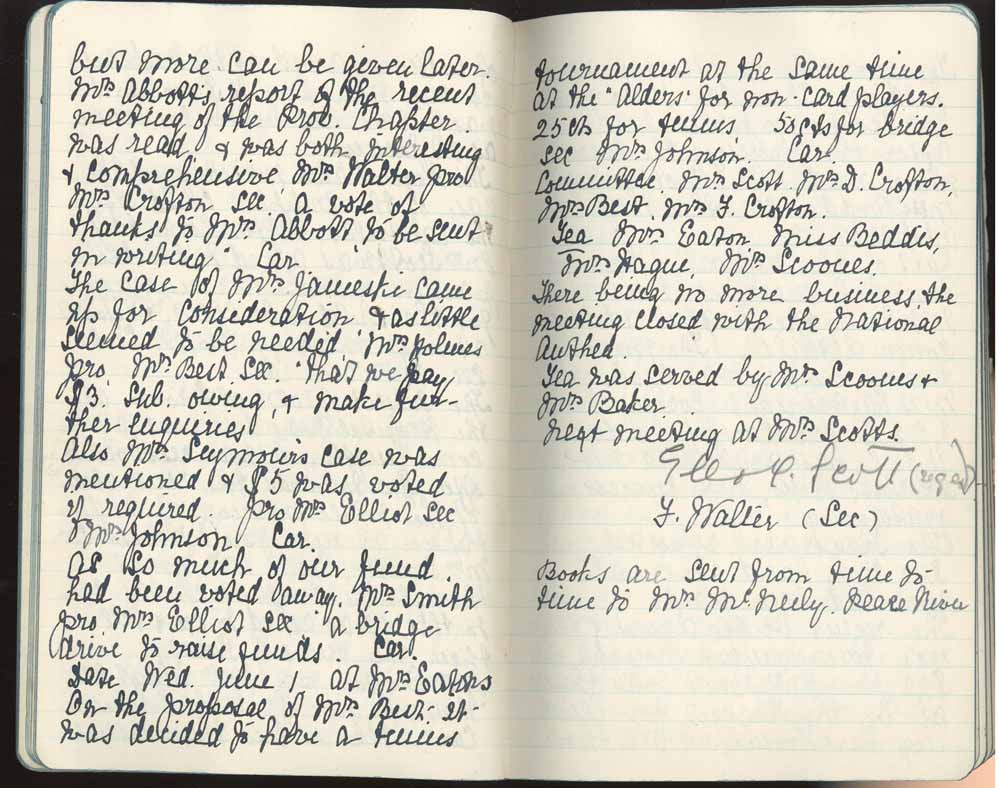 but more can be given later.
Mrs Abbotts, report of the recent
meeting of the Prov. Chapter
was read & was both interesting
& comprehensive, Mrs Walter pro
Mrs Crofton sec. a vote of
thanks to Mrs Abbott to be sent
in writing. Car.
The case of Mrs Jameski came
up for consideration & as little
seemed to be needed, Mrs Holmes
pro, Mrs Best sec. "that we pay
$3. Sub. owing, & make fur-
ther enquiries
Also Mrs Seymours case was
mentioned & $5 was voted
if required. pro Mrs Elliot sec
Mrs Johnson Car.
As so much of our fund
had been voted away. Mrs Smith
pro. Mrs Elliot sec a bridge
drive to raise funds. Car.
Date Wed. June 1 at Mrs Eatons
On the proposal of Mrs Best. It
was decided to have a tennis
tournament at the same time
at the "Alders" for non-card players.
25cts for tennis 50cts for bridge
sec Mrs Johnson. Car.
Committee, Mrs Scott. Mrs D. Crofton,
Mrs Best. Mrs F. Crofton.
Tea Mrs Eaton Miss Beddis,
Mrs Hague, Mrs Scoones.
There being no more business, the
meeting closed with the National
Anthem.
Tea was served by Mrs Scoones &
Mrs Baker
next meeting at Mrs Scotts.
Scott
F. Walter (Sec)
Books are sent from time to
time to Mrs McNeily, Peace River